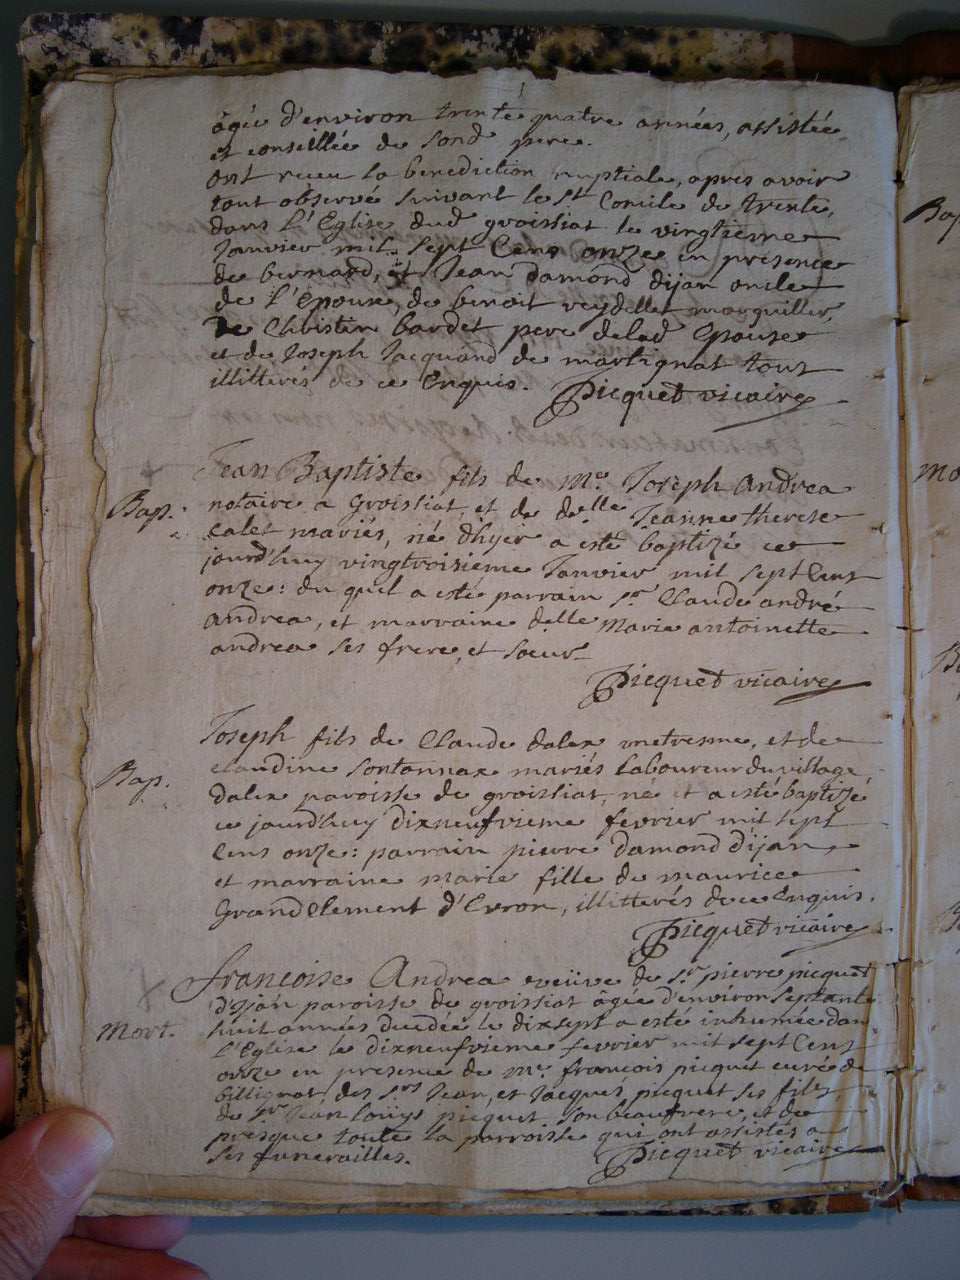 âgée d'environ trente quatre années, assistée
et conseillée de sond pere.
ont receu la benediction nuptiale, apres avoir
tout observé suivant le st Concile de trente,
dans l'Eglise dud groissiat le vingtieme
Janvier mil sept Cens onze en presence
de bernard, et Jean damond dijan oncle
de l'epoux, de benoit reydellet marguiller,
de Christin bardet pere delad Epouse
et de Joseph Jacquand de martignat tous
illitterés de ce Enquis. Picquet vicaire
Bap.
Jean Baptiste fils de Me Joseph Andrea
notaire a Groissiat, et de delle Jeanne therese
calet mariés, né d'hyer a esté baptizé ce
jourd'huy vingtroisieme Janvier mil sept Cens
onze: du quel a esté parrain sr Claude andré
Andrea, et marraine delle Marie antoinette
andrea ses frere, et soeur
Picquet vicaire
Bap.
Joseph fils de Claude dalex , et de
claudine sontonnax mariés laboureur du village
dalex paroisse de groissiat, né et a esté baptizé
ce jourd'huy dixneufvieme fevrier mil sept
Cens onze: parrain pierre damond dijan,
et marraine marie fille de maurice
Grandclement d'Evron, illitterés de ce Enquis.
Picquet vicaire
Mort.
francoise Andrea veüve de sr pierre picquet
d'ijan paroisse de groissiat âgée d'environ septante
huit années decedée le dixsept a esté inhumée dans
l'Eglise le dixneufvieme fevrier mil sept Cens
onze en presence de Me francois picquet curé de
billignat, des srs Jean, et Jacques picquet ses fils
de sr Jean louys picquet son beaufrere, et de
presque toute la parroisse qui ont assistés a
ses funerailles. Picquet vicaire
Bap
Mo
B